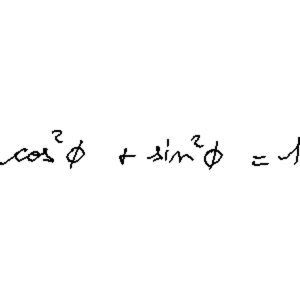 cos²φ + sin²φ = 1